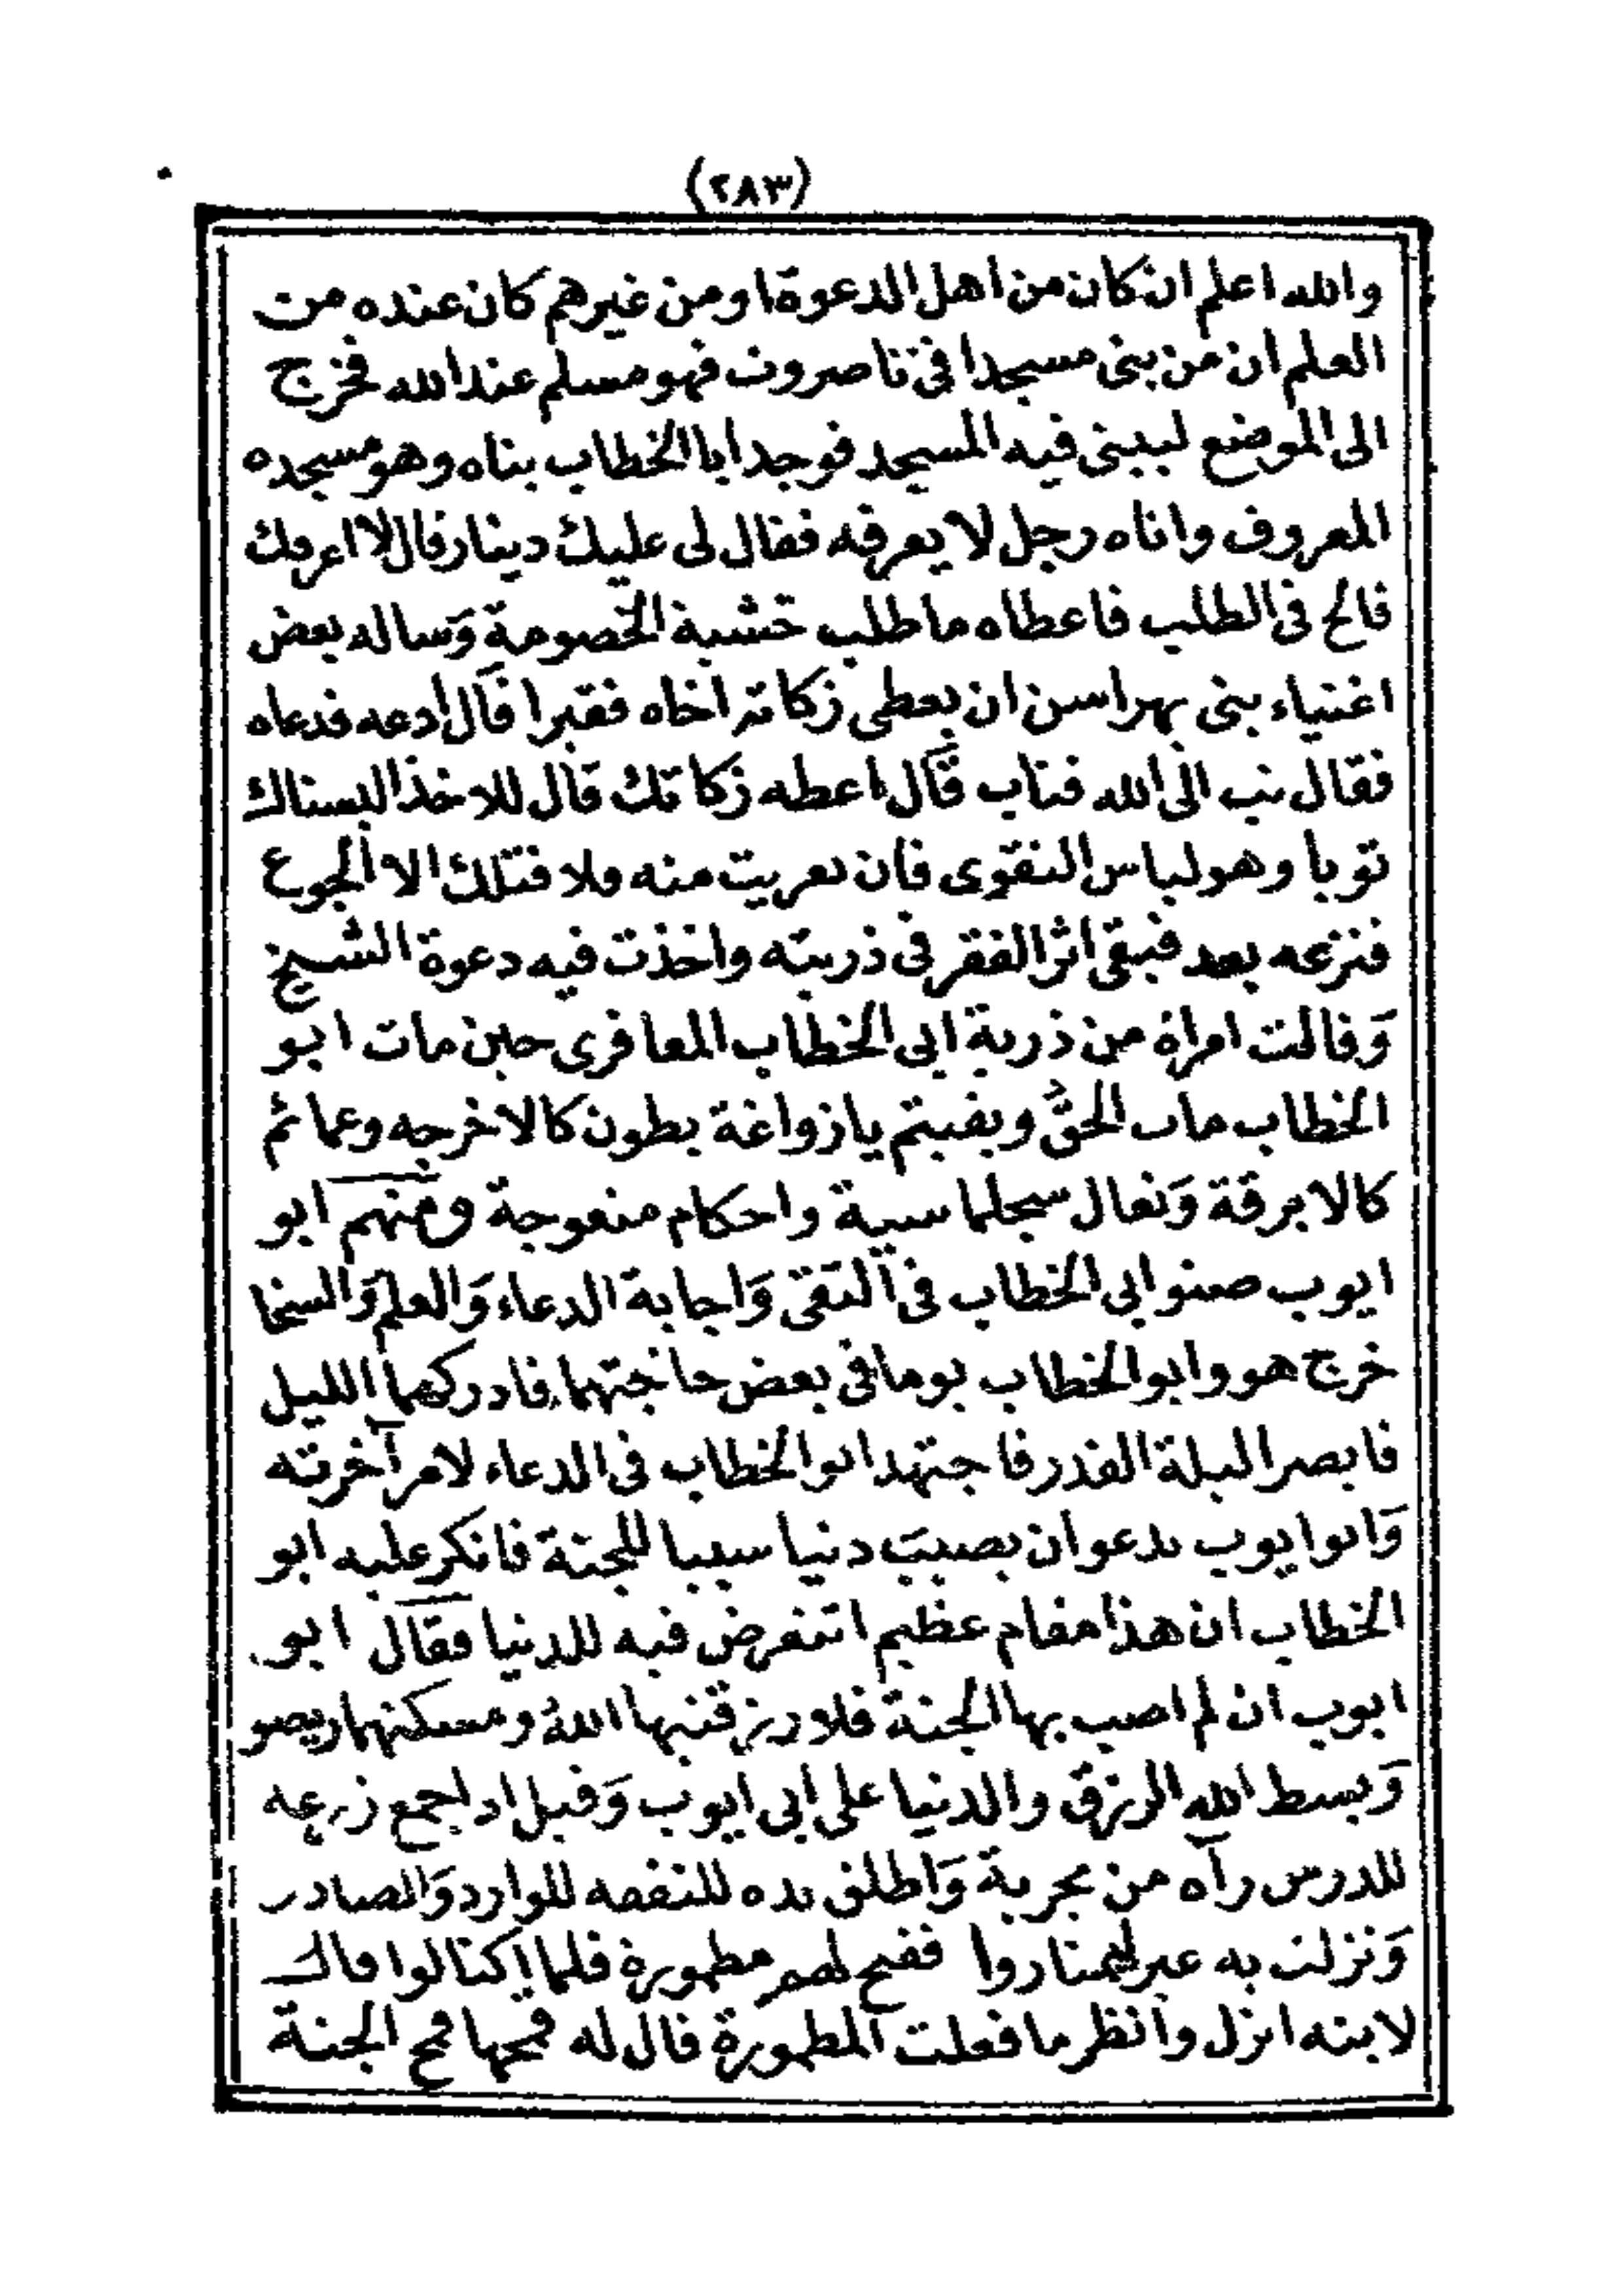 (٢٨٣)
والله اعلم ان كان من اهل الدعوة او من غيرهم كان عنده من
العلم ان من بنى مسجدا فى تاصرون فهو مسلم عند الله فخرج
الى الموضع ليبنى فيه المسجد فوجد ابا الخطاب بناه وهو مسجده
المعروف واتاه رجل لا يعرفه فقال لى عليك دينار قال لا اعرفك
فالح فى الطلب فاعطاه ما طلب خشية الخصومة وَساله بعض
اغنياء بنى يهراسن ان يعطى زكاته اخاه فقيرا قال ادعه فدعاه
فقال تب الى الله فتاب قال اعطه زكاتك قال للاخذ البسناك
توبا وهو لباس التقوى فان تعريت منه فلا قتلك الا الجوع
فنزعه بعد فبقى اثر الفقر فى ذريته واخذت فيه دعوة الشيخ
وَقالت امراة من ذرية ابى الخطاب المعافرى حين مات ابو
الخطاب مات الحقُّ وبقيتم يا زواغة بطون كالاخرجه وعمائم
كالابرقة وَنعال سجلماسية واحكام منعوجة ومنهم ابو
ايوب صنو ابى الخطاب فى التقى وَاجابة الدعاء وَالعلم وَالسخا
خرج هو وابو الخطاب يوما فى بعض حاجتهما فادركهما الليل
فابصرا ليلة القدر فاجتهد ابو الخطاب فى الدعاء لامر آخرته
وَابو ايوب يدعو ان يصيبَ دنيا سببا للجنة فانكر عليه ابو
الخطاب ان هذا مقام عظيم اتتعرض فيه للدنيا فقال ابو
ايوب ان لم اصب بها الجنة فلا رزقنيها اللهُ ومسكنهما ريصو
وَبسط الله الرزق والدنيا على ابى ايوب وَقيل اذ اجمع زرعه
للدرس رآه من بحرية وَاطلق يده للنفقه للوارد وَالصادر
وَنزلت به عير ليمتاروا ففتح لهم مطمورة فلما اكتالوا قال
لابنه انزل وانظر ما فعلت المطمورة قال له قمحها قمح الجنة